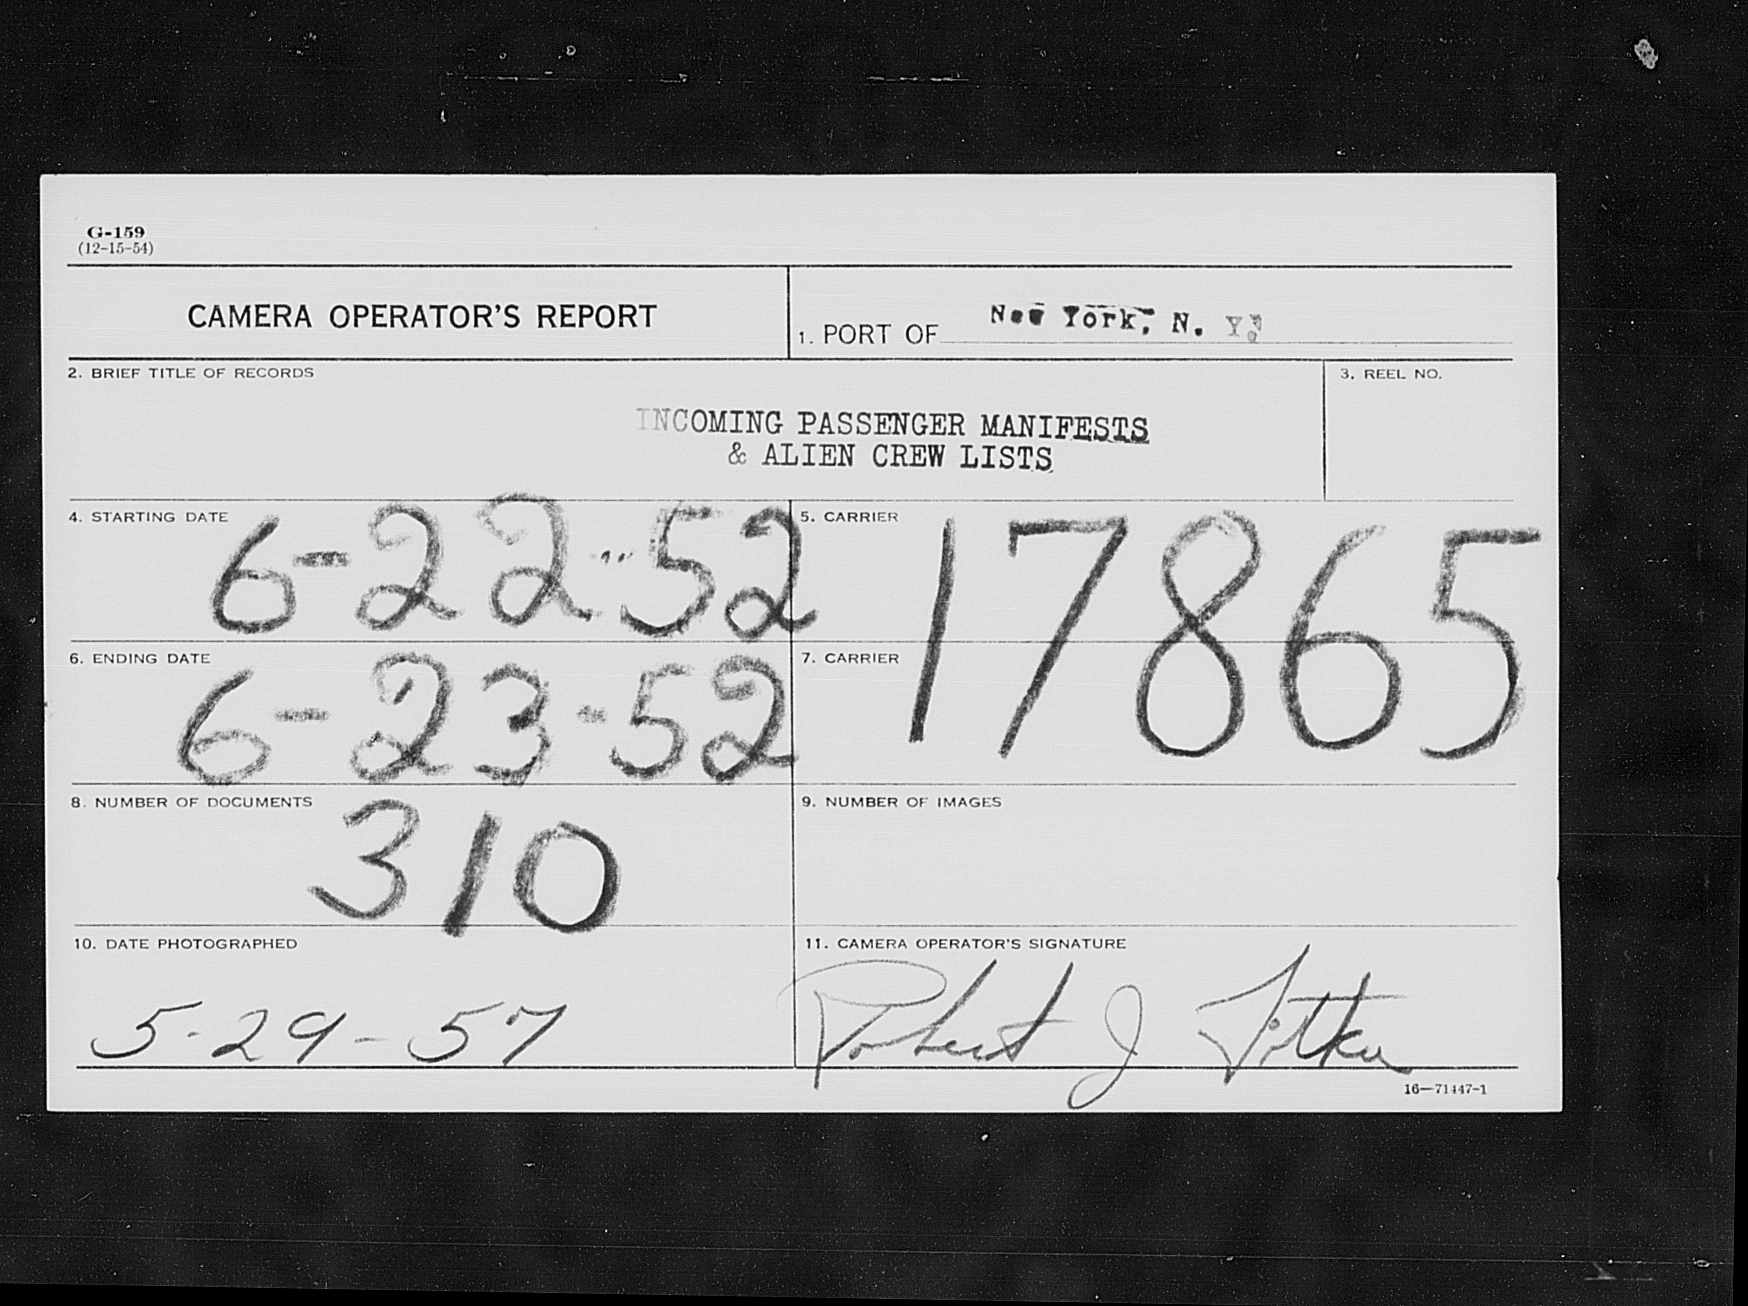 G-159
(12-15-54)
CAMERA OPERATOR'S REPORT
1. PORT OF New York, N. Y.
2. BRIEF TITLE OF RECORDS
3. REEL NO.
INCOMING PASSENGER MANIFESTS
& ALIEN CREW LISTS
4. STARTING DATE 6-22-52
5. CARRIER
17865
6. ENDING DATE 6-23-52
7. CARRIER
8. NUMBER OF DOCUMENTS 310
9. NUMBER OF IMAGES
10. DATE PHOTOGRAPHED
5-29-57
11. CAMERA OPERATOR'S SIGNATURE
Robert J
16—71447-1